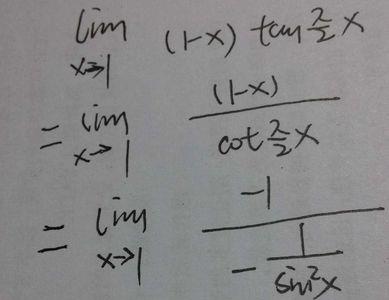 lim x→1 (1-x) tan π/2 x
= lim x→1 (1-x) / cot π/2 x
= lim x→1 -1 / - 1/sin²x